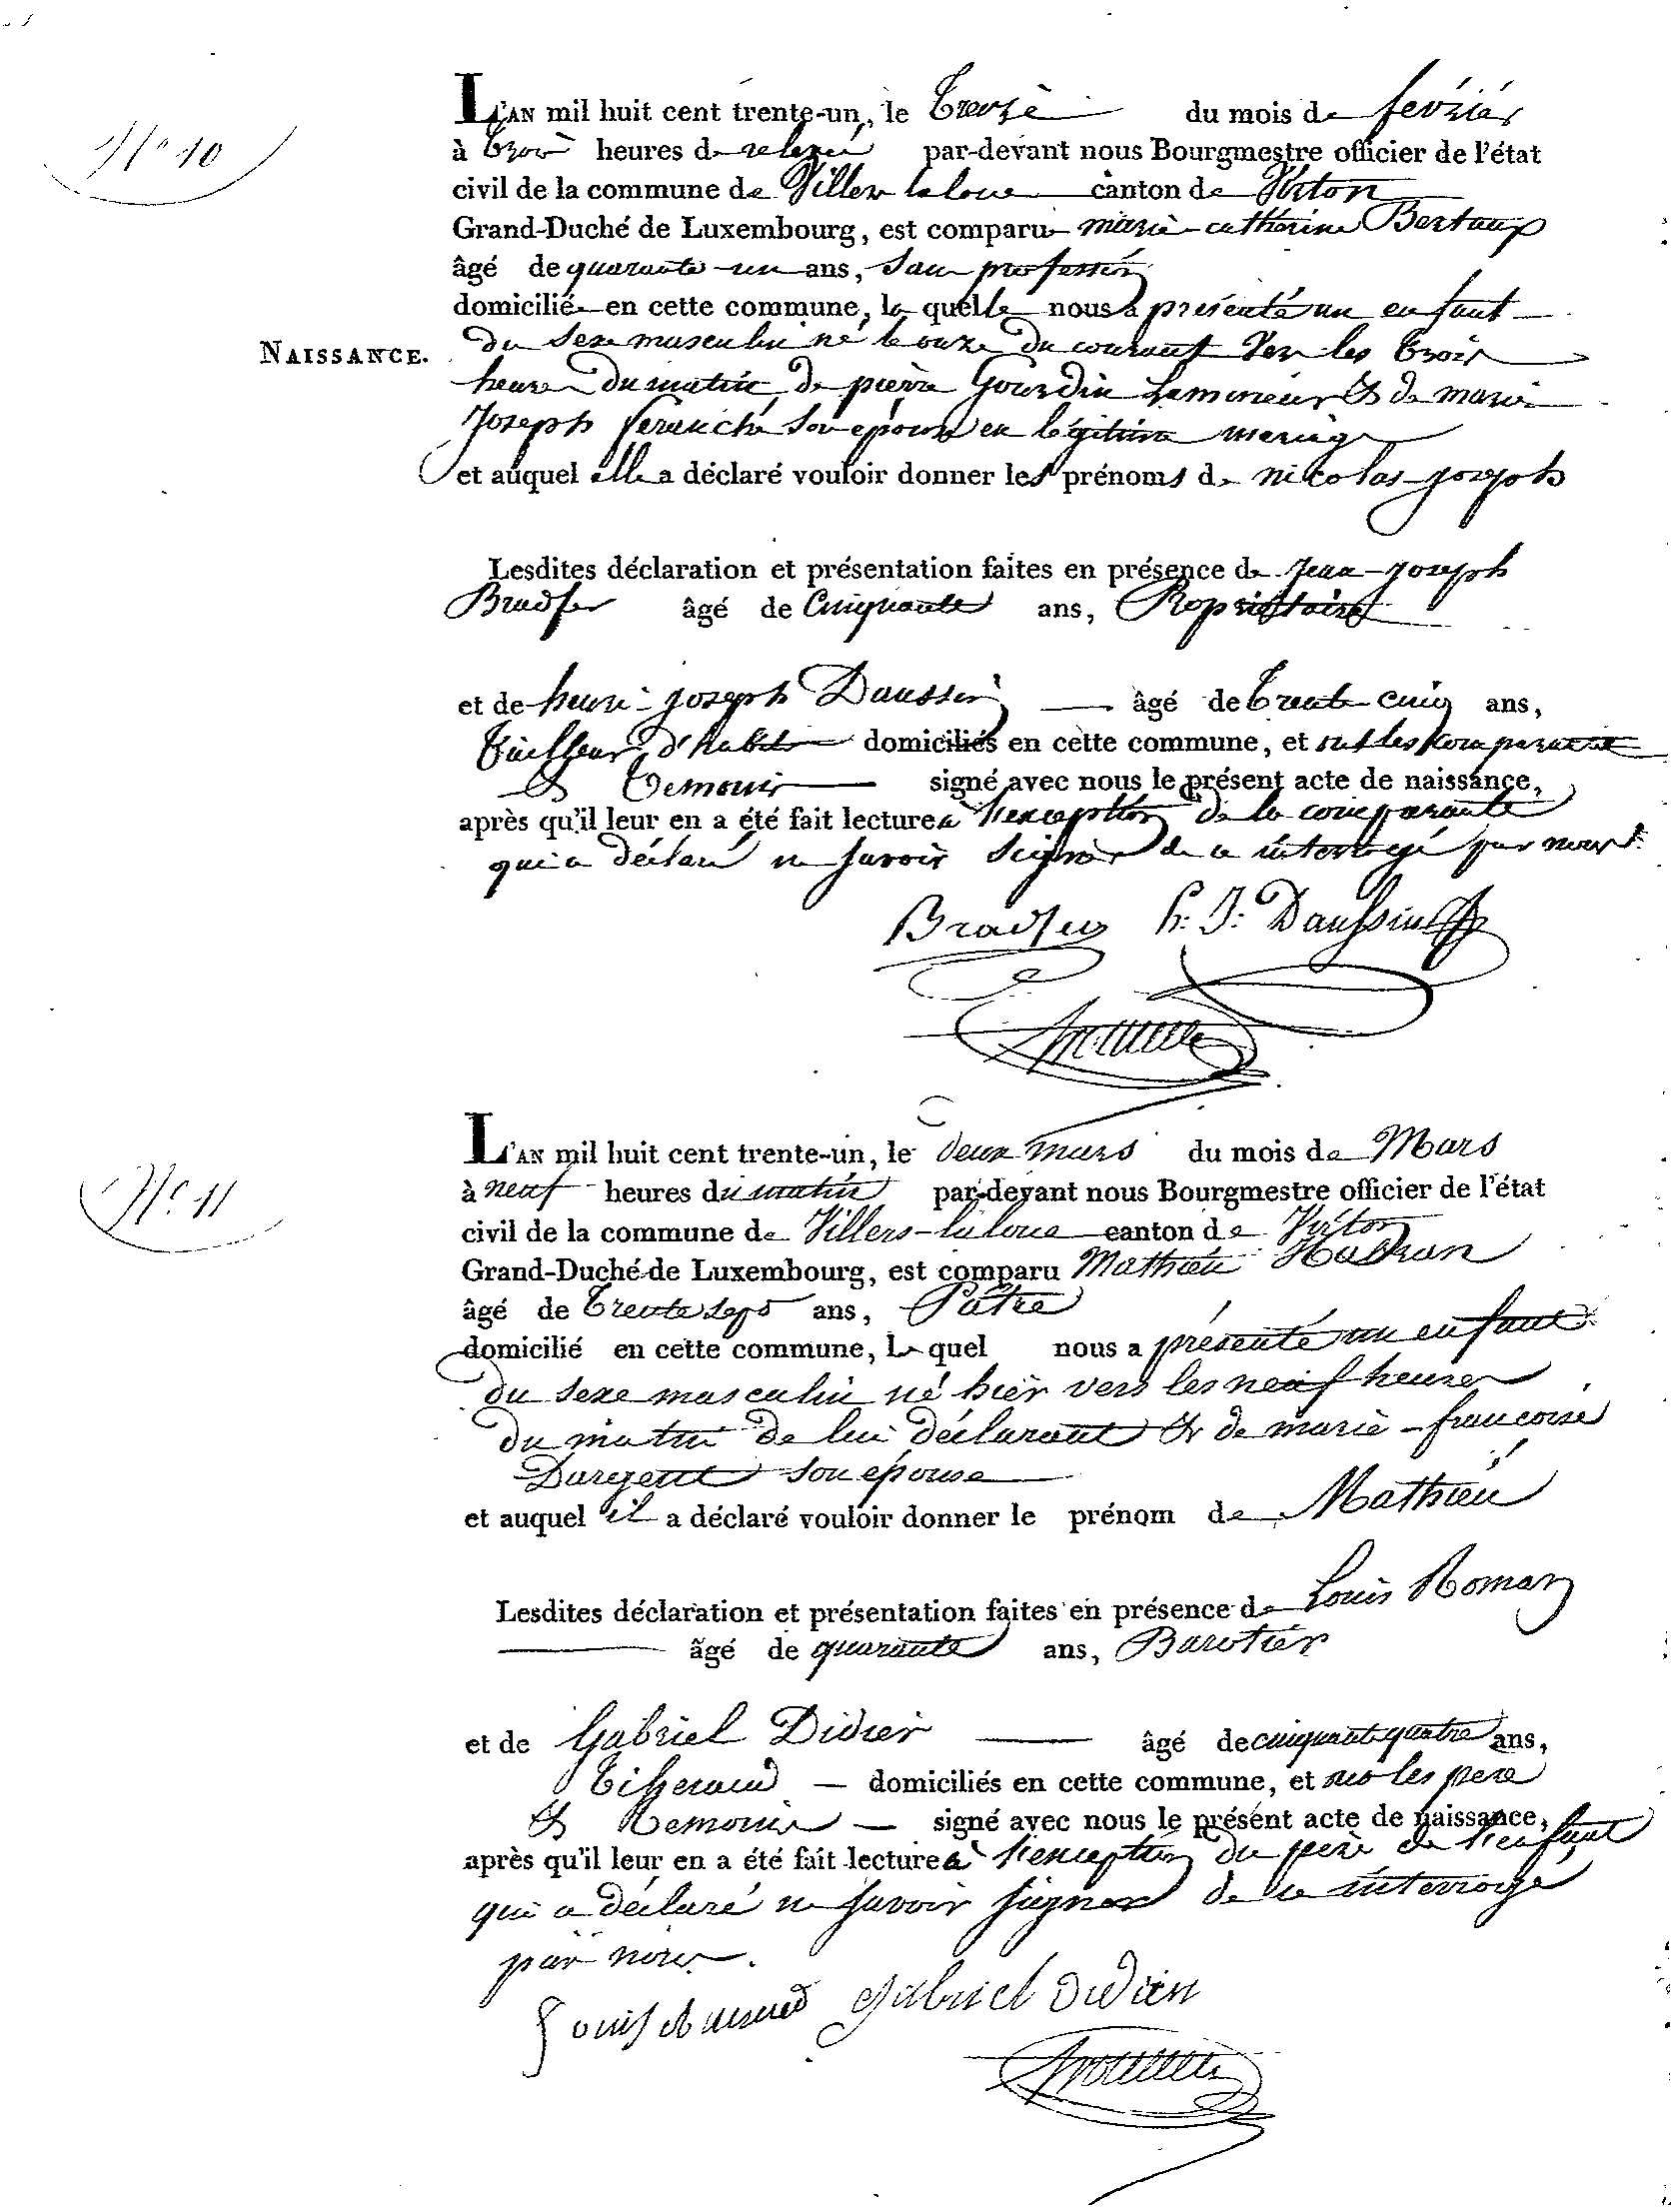 N° 10
L'AN mil huit cent trente-un, le treize du mois de fevriér
à trois heures de relevée par-devant nous Bourgmestre officier de l'état
civil de la commune de Villers laloue canton de Virton
Grand-Duché de Luxembourg, est comparue marie-catherine Bertaux
âgé de quarante-un ans, sans profession
domicilié en cette commune, la quelle nous a présenté un enfant
NAISSANCE.
du sexe masculin né le onze du courant vers les trois
heures du matin de piérre Gourdin et de marie
Joseph son épouse en légitime mariage
et auquel elle a déclaré vouloir donner les prénoms de nicolas-joseph
Lesdites déclaration et présentation faites en présence de Jean-joseph
Bradfer âgé de Cinquante ans, Propriétaire
et de henri-joseph Daussin âgé de trente-cinq ans,
tailleur d'habits domiciliés en cette commune, et ont les comparante
et temoins signé avec nous le présent acte de naissance,
après qu'il leur en a été fait lecture à l'exception de la comparante
qui a déclaré ne savoir signer de ce interrogé par nous
Bradfer h: J: Daussin
N° 11
L'AN mil huit cent trente-un, le deux mars du mois de Mars
à neuf heures du matin par-devant nous Bourgmestre officier de l'état
civil de la commune de Villers-laloue canton de Virton
Grand-Duché de Luxembourg, est comparu Mathieu
âgé de trente sept ans, Pâtre
domicilié en cette commune, le quel nous a présenté un enfant
du sexe masculin né hièr vers les neuf heures
du matin de lui déclarant et de marie-francoise
Dargent son épouse
et auquel il a déclaré vouloir donner le prénom de Mathieu
Lesdites déclaration et présentation faites en présence de Louis Roman
âgé de quarante ans, Barotier
et de Gabriel Didier âgé de cinquante quatre ans,
tisserand domiciliés en cette commune, et ont les pere
et temoins signé avec nous le présent acte de naissance,
après qu'il leur en a été fait lecture à l'exception du père de l'enfant
qui a déclaré ne savoir signer de ce interrogé
par nous.
Louis gabriel didier